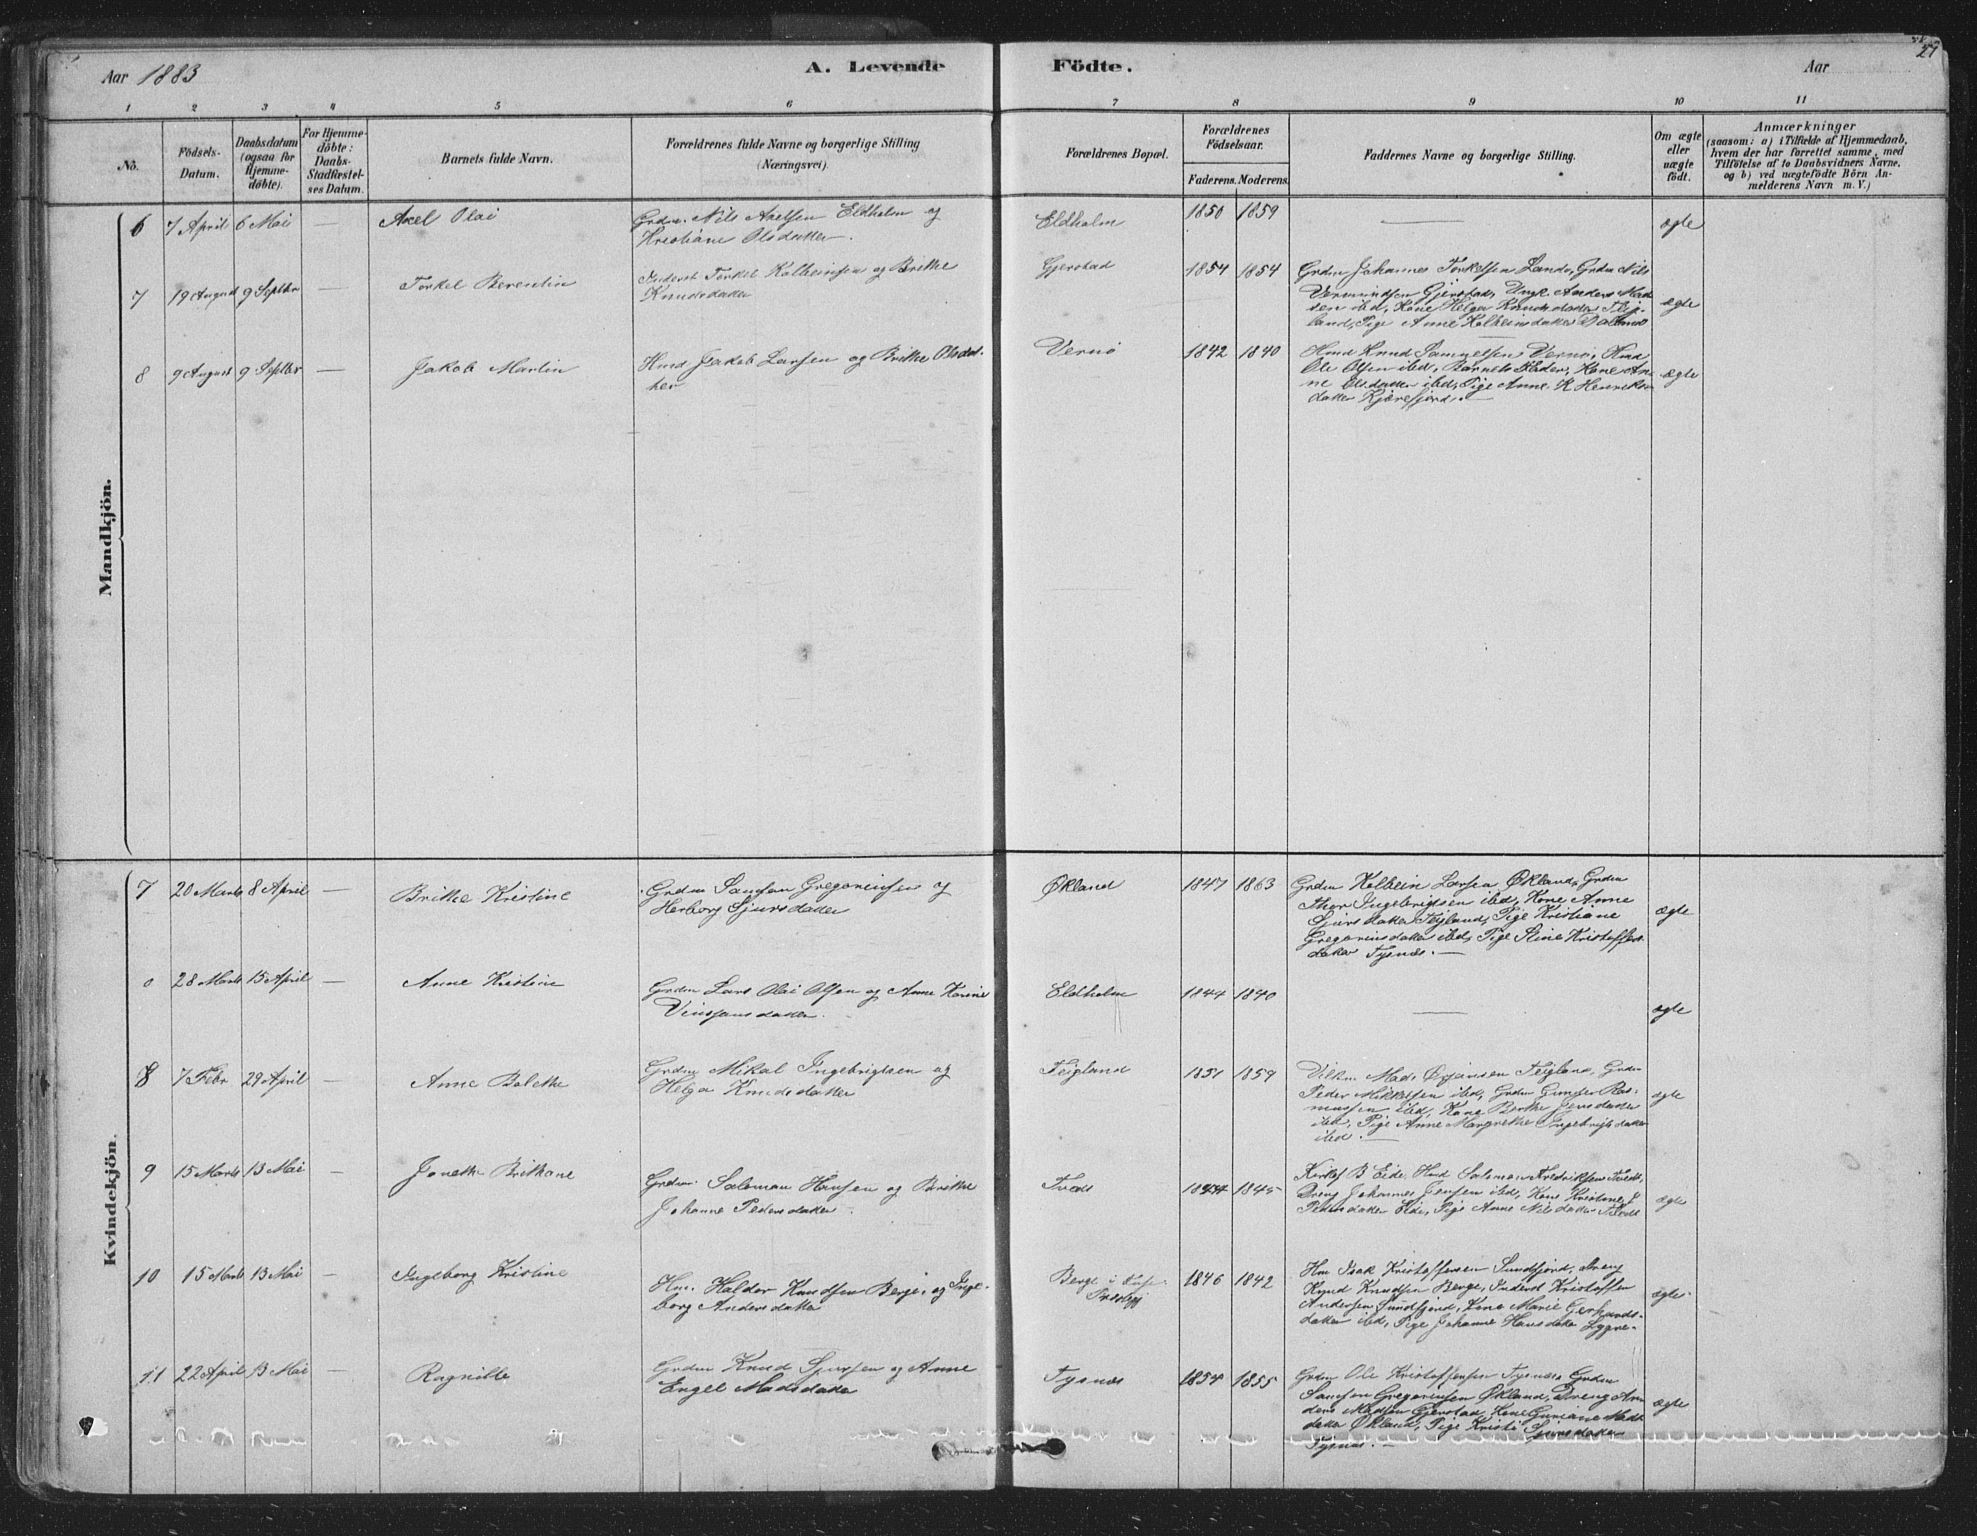 Aar 1883
A. Levende
Födte.
Aar
27
1 2 3 4 5 6 7 8 9 10 11
No.
Födsels-
Datum.
Daabsdatum
(ogsaa for
Hjemme-
döbte).
For Hjemme-
döbte:
Daabs-
Stadfæstel-
ses Datum.
Barnets fulde Navn.
Forældrenes fulde Navne og borgerlige Stilling
(Næringsvei).
Forældrenes Bopæl.
Forældrenes
Födselsaar.
Faderens. Moderens.
Faddernes Navne og borgerlige Stilling.
Om ægte
eller
uægte
födt.
Anmærkninger
(saasom: a) i Tilfælde af Hjemmedaab,
hvem der har forrettet samme, med
Tilföielse af to Daabsvidners Navne,
og b) ved uægtefödte Börn An-
melderens Navn m. V.)
Mandkjön.
6 7 April 6 Mai — Axel Olai
Grdm. Nils Axelsen Eldholm og
Kristiane Olsdatter.
Eldholm 1850 1859 — ægte
7 19 August 9 Septbr — Torkel Berentin
Inderst Torkel Kolbeinsen og Brithe
Knudsdatter
Gjerstad 1854 1854
Grdm Johannes Torkelsen Lande, Grdm Nils
Vermundsen Gjerstad, Ungk. Anders Mad-
sen ibd, Kone Helga Knudsdatter Teig-
land, Pige Anne Kolbeinsdatter
ægte
8 9 August 9 Septbr — Jakob Martin
Hmd Jakob Larsen og Brithe Olsdat-
ter
Vernø 1842 1840
Hmd Knud Samuelsen Vernø, Hmd
Ole Olsen ibd, Barnets Fader, Kone An-
ne Olsdatter ibd, Pige Anne K Henriks-
datter
ægte
Kvindekjön.
7 20 Marts 8 April — Brithe Kristine
Grdm Samson Gregoriussen og
Herborg Sjursdatter
Økland 1847 1863
Grdm Kolbein Larsen Økland, Grdm
Ingebrigtsen ibd, Kone Anne
Sjursdatter Teigland, Pige Kristiane
Gregoriusdatter ibd, Pige Stine Kristoffers-
datter Tysnes. —
ægte
0 28 Marts 15 April — Anne Kristine
Grdm Lars Olai Olsen og Anne Karine
Vinsjansdatter.
Eldholm 1844 1840 — ægte
8 7 Febr 29 April — Anne Bolethe
Grdm Mikal Ingebrigtsen og
Helga Knudsdatter
Teigland 1851 1859
Mads Ørjansen Teigland, Grdm
Peder Mikkelsen ibd, Grdm Gunder Ras-
mussen ibd, Kone Berthe Jensdatter
ibd, Pige Anne Margrethe Ingebrigtsdatter
ibd. —
ægte
9 15 Marts 13 Mai — Jonette Brithane
Grdm. Salomon Hansen og Brithe
Johanne Pedersdatter.
1844 1845
B Eide, Hmd Salomon Fredriksen
Dreng Johannes Jensen ibd, Kone Kristine
Pedersdatter Eide, Pige Anne Nilsdatter
ægte
10 15 Marts 13 Mai — Ingeborg Kristine
Hm. Haldor Knudsen Berge og Inge-
borg Andersdatter
Berge i 1846 1842
Hm Isak Kristoffersen Sundfjord, Dreng
Knud Knudsen Berge, Inderst Kristoffer
Andersen Sundfjord, Kone Marie Gerhards-
datter ibd, Pige Johanne Hansdatter Lygre.
ægte
11 22 April 13 Mai — Ragnilde
Grdm Knud Sjursen og Anne
Engel Madsdatter
Tysnes 1854 1855
Grdm Ole Kristoffersen Tysnes, Grdm
Samson Gregoriussen Økland, Dreng An-
ders Madsen Gjerstad, Kone Guriane Mads-
datter Økland, Pige Kristi Sjursdatter
Tysnes. —
ægte